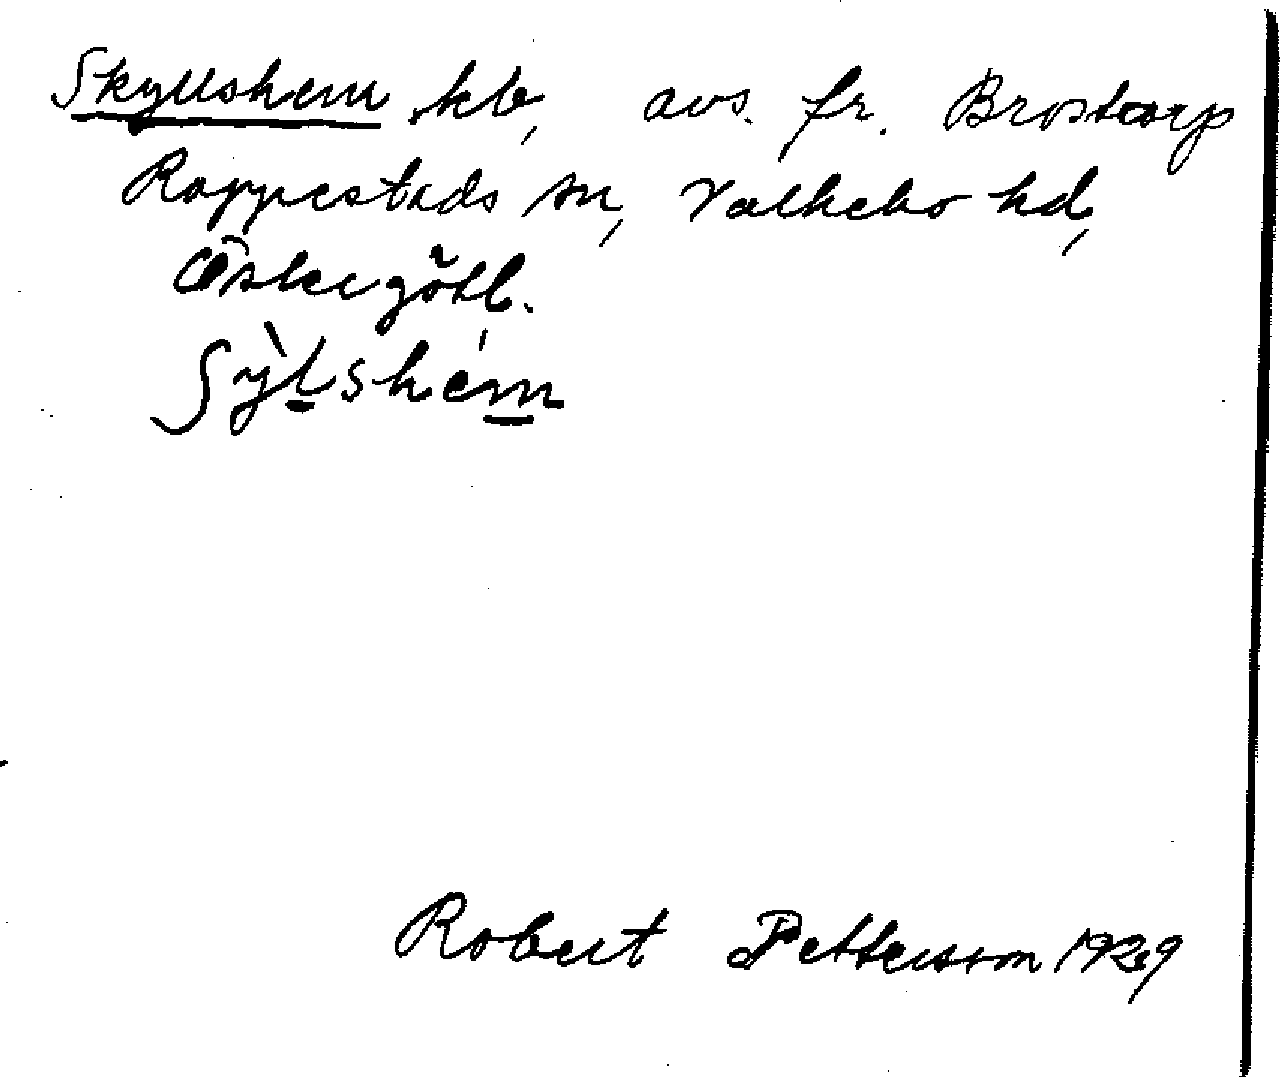 Skyllshem, kb, avs. fr. Brostorp
Rappestads sn, Valkebo hd,
Östergötl.
ʃỳlshém
Robert Pettersson 1929